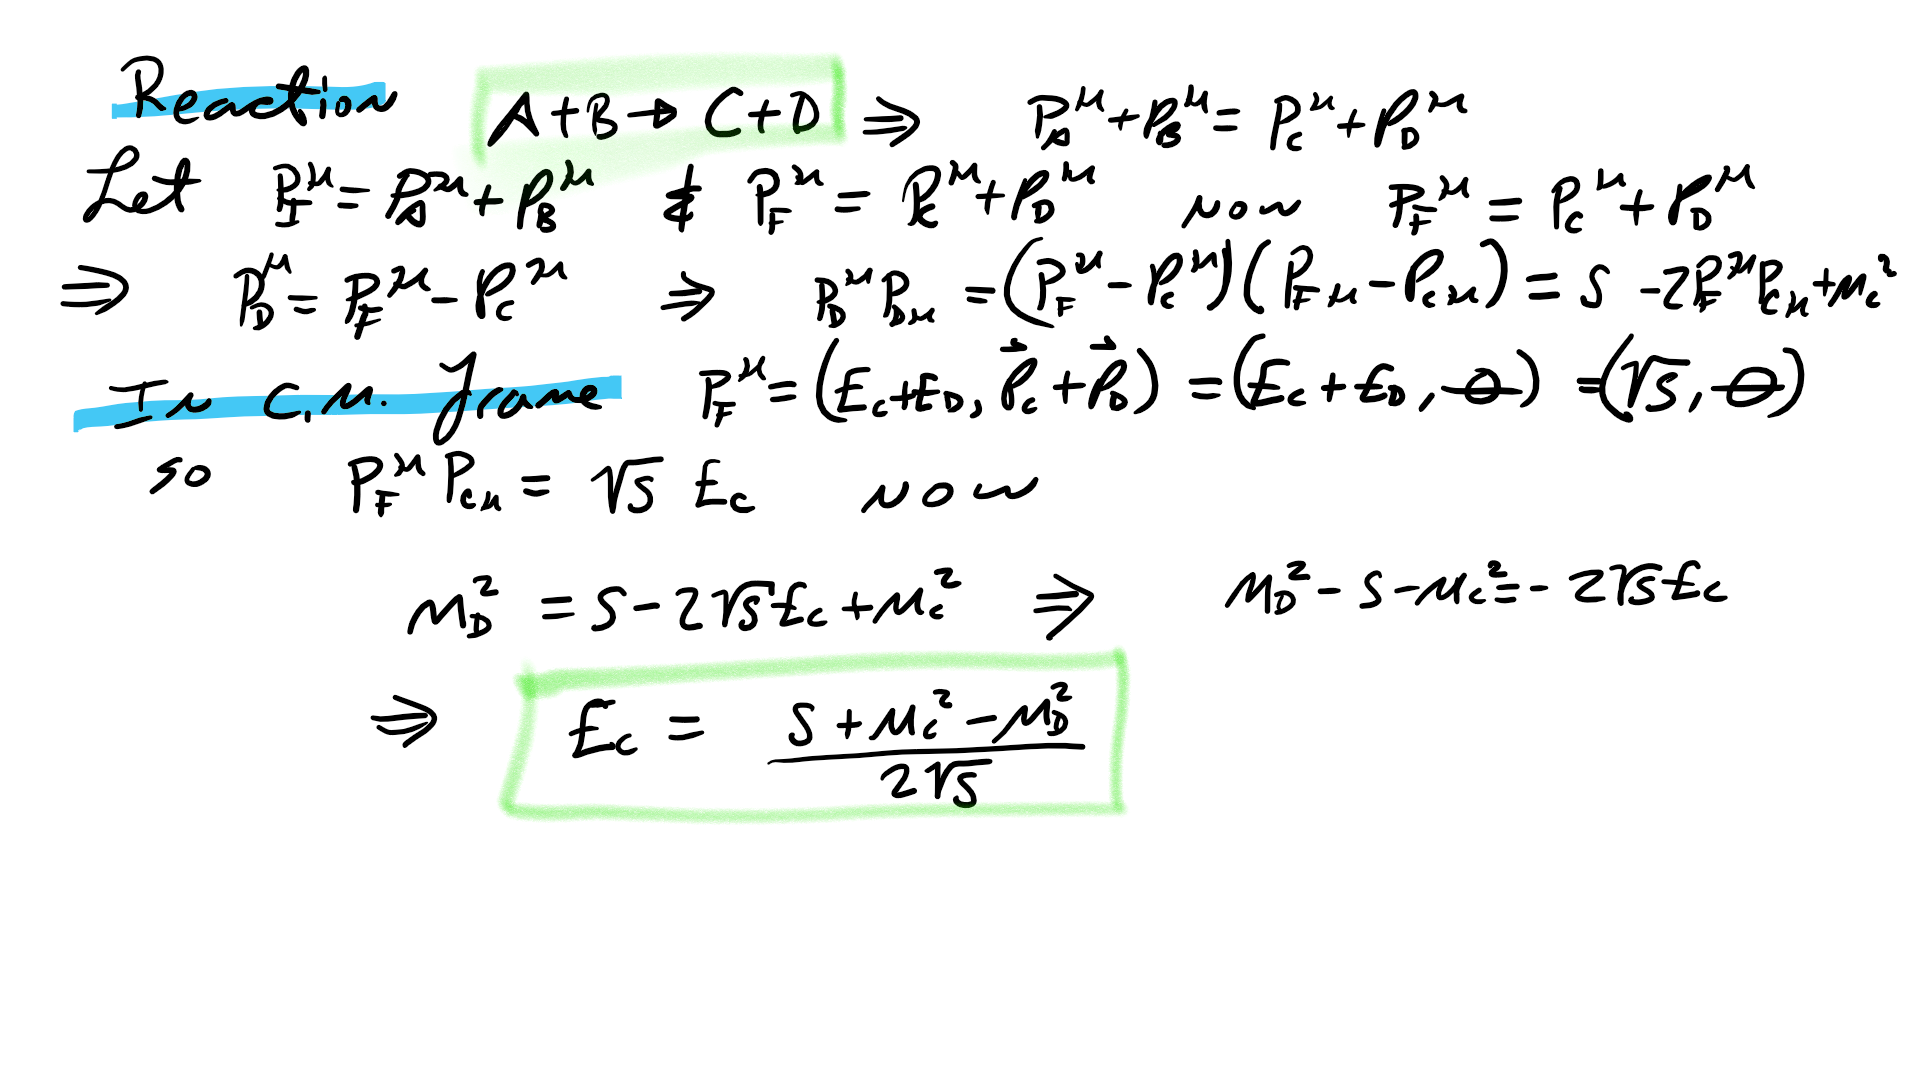 Reaction A+B→C+D ⇒ P_A^μ+P_B^μ = P_C^μ+P_D^μ
Let P_I^μ = P_A^μ+P_B^μ & P_F^μ = P_C^μ+P_D^μ now P_F^μ = P_C^μ+P_D^μ
⇒ P_D^μ = P_F^μ - P_C^μ ⇒ P_D^μ P_Dμ = (P_F^μ - P_C^μ)(P_Fμ - P_Cμ) = S - 2P_F^μ P_Cμ + M_C^2
In C.M. frame P_F^μ = (E_C+E_D, \vec{P}_C+\vec{P}_D) = (E_C+E_D, 0) = (√S, 0)
so P_F^μ P_Cμ = √S E_C now
M_D^2 = S - 2√S E_C + M_C^2 ⇒ M_D^2 - S - M_C^2 = - 2√S E_C
⇒ E_C = \frac{S + M_C^2 - M_D^2}{2√S}